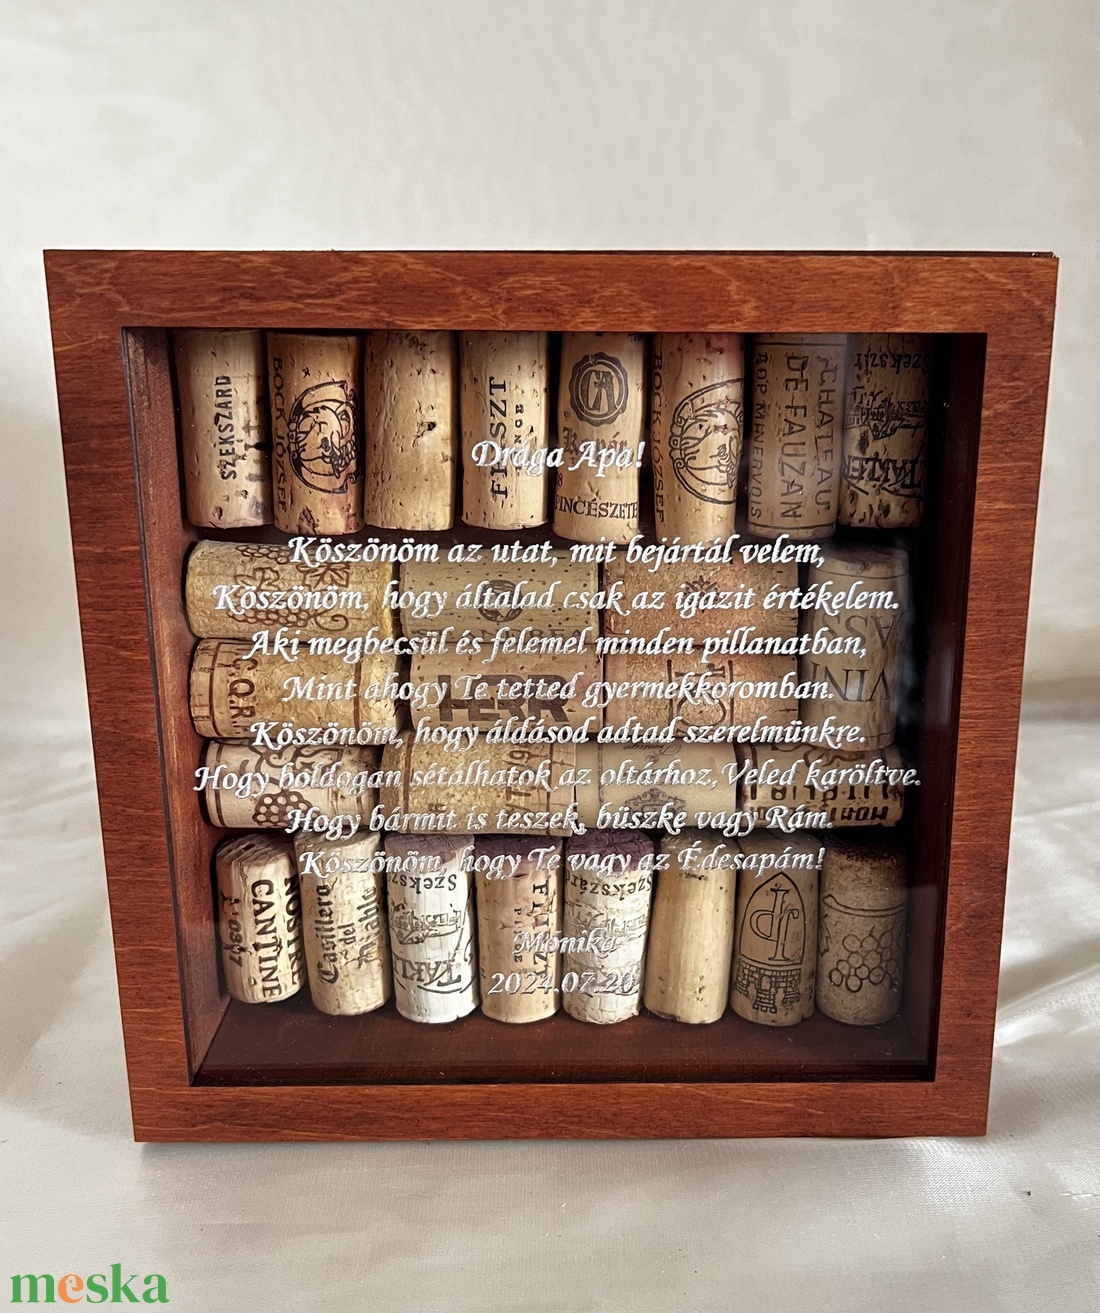 SZEKSZÁRD
BOCK JÓZSEF
FIASZT
PINCÉSZETE
BOCK JÓZSEF
CHATEAU
DE FAUZAN
AOP MINERVOIS
Szekszár
TAKLER
Drága Apa!
Köszönöm az utat, mit bejártál velem,
Köszönöm, hogy általad csak az igazit értékelem.
Aki megbecsül és felemel minden pillanatban,
Mint ahogy Te tetted gyermekkoromban.
Köszönöm, hogy áldásod adtad szerelmünkre.
Hogy boldogan sétálhatok az oltárhoz, Veled karöltve.
Hogy bármit is teszek, büszke vagy Rám.
Köszönöm, hogy Te vagy az Édesapám!
Mónika
2024.07.20.
HERR
VINI
CANTINE
Casillero
del
Szeksz
Szekszárd
meska